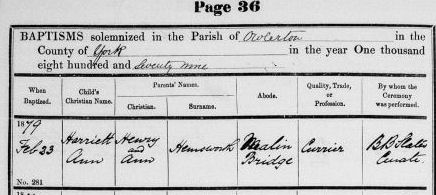 Page 36
BAPTISMS solemnized in the Parish of Owlerton in the
County of York in the year One thousand
eight hundred and seventy nine
When Baptized. Child's Christian Name. Parents' Names. Abode. Quality, Trade, or Profession. By whom the Ceremony was performed.
Christian. Surname.
1879
Feb 23 Harriett Ann Henry and Ann Hemsworth Malin Bridge Currier B B Slater Curate.
No. 281